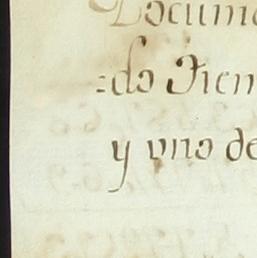 Docum
=do Fien
y vno de